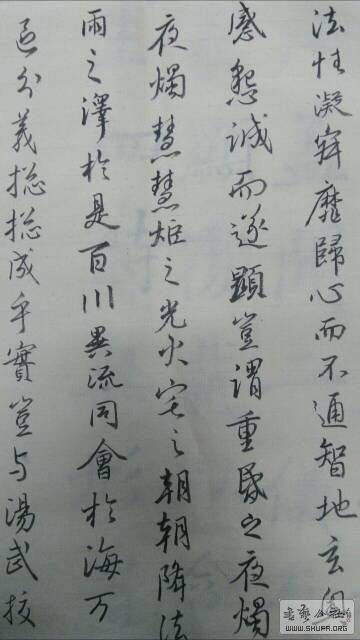 法性凝寂靡歸心而不通智地玄奧
感懇誠而遂顯豈謂重昏之夜燭
夜燭慧慧炬之光火宅之朝朝降法
雨之澤於是百川異流同會於海万
區分義捴捴成乎實豈与湯武挍
WWW.SHUFA.ORG